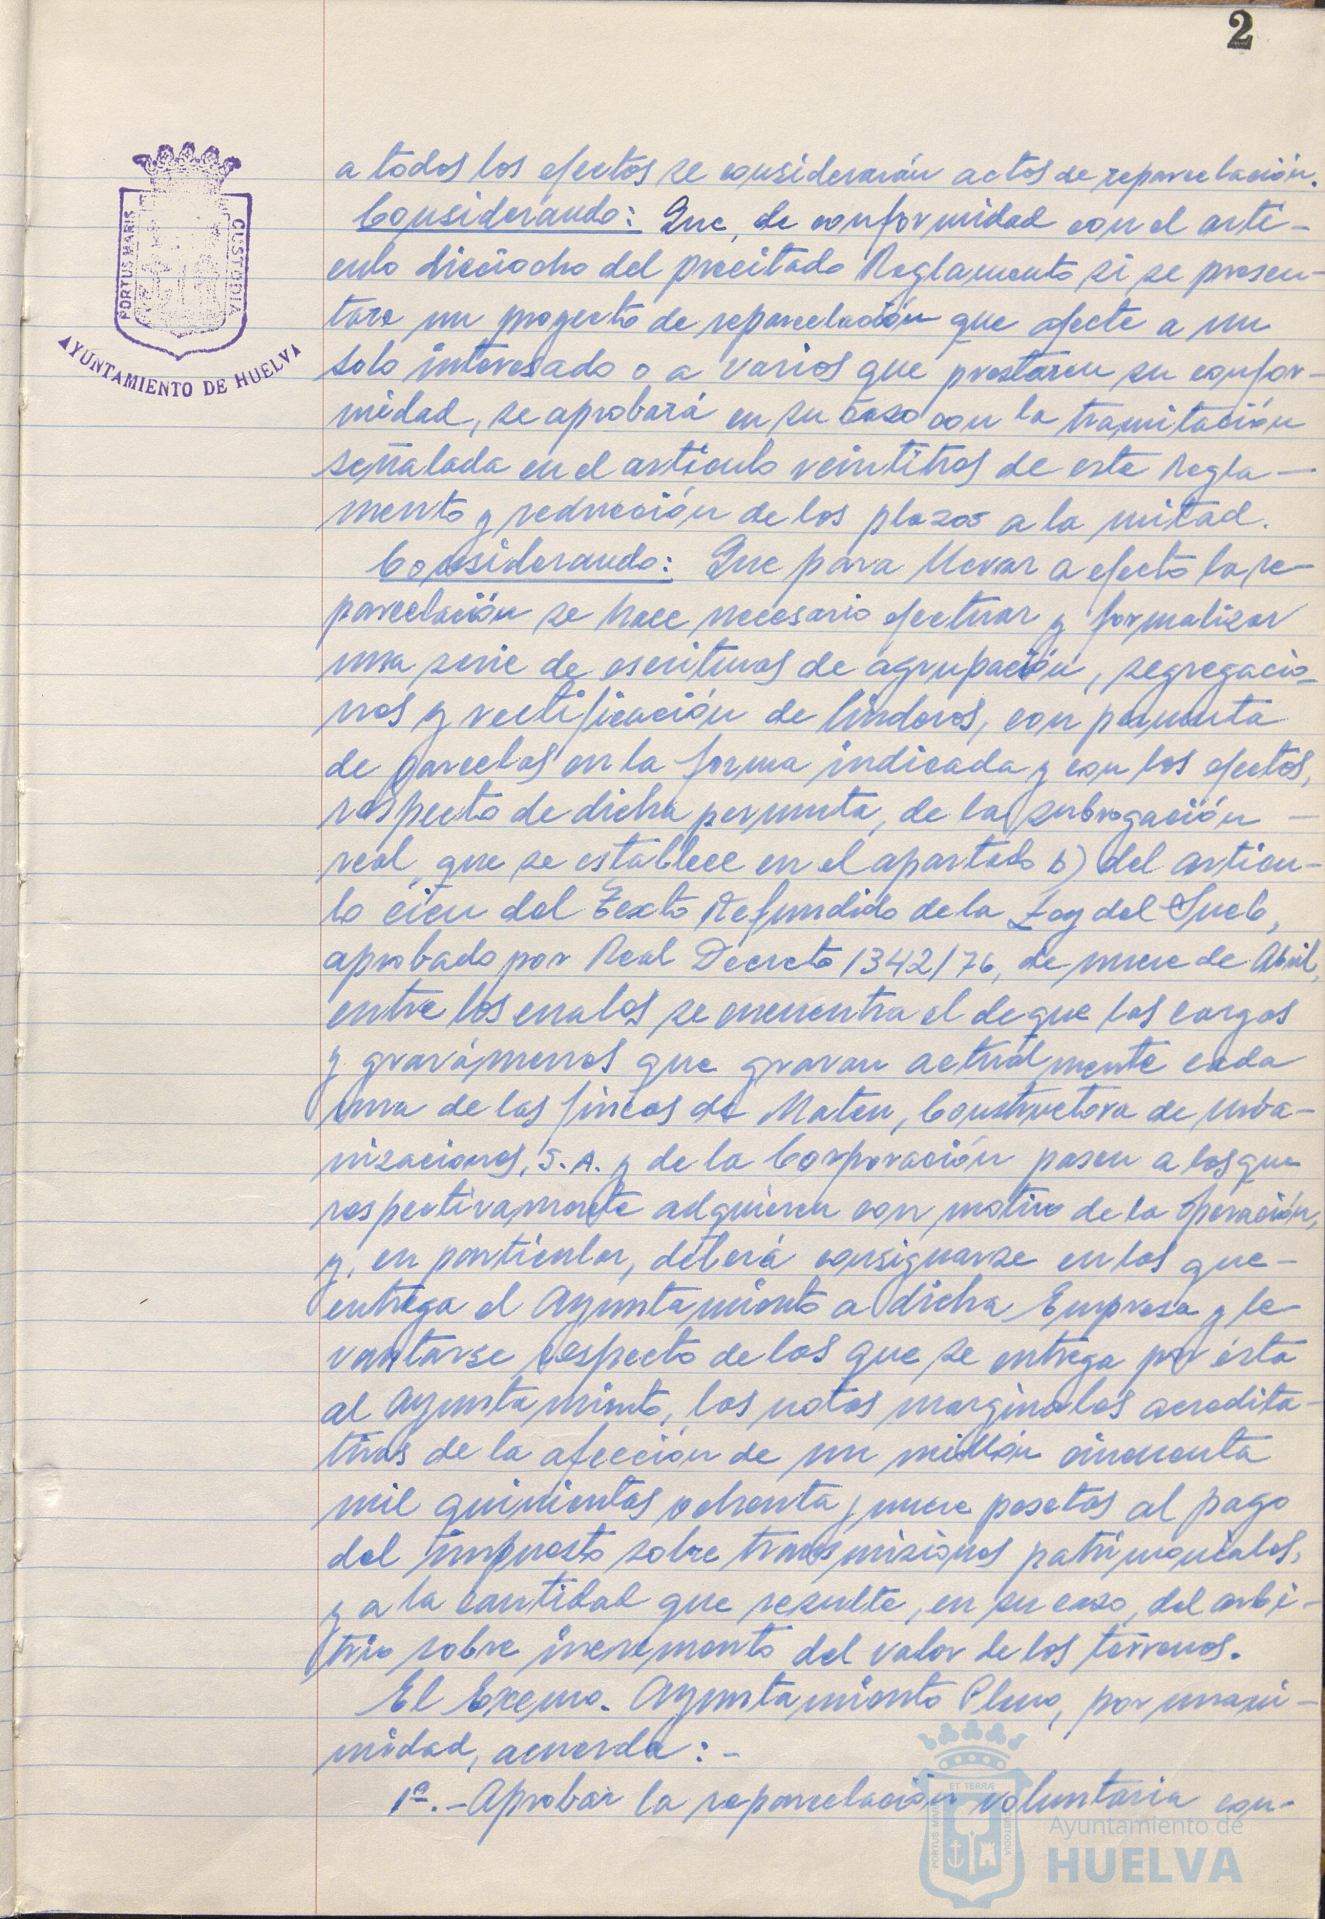 2
PORTUS MARIS
CUSTODIA
AYUNTAMIENTO DE HUELVA
a todos los efectos se considerarán actos de reparcelación.
Considerando: Que, de conformidad con el artí-
culo dieciocho del precitado Reglamento si se presen-
tare un proyecto de reparcelación que afecte a un
solo interesado o a varios que prestaren su confor-
midad, se aprobará en su caso con la tramitación
señalada en el artículo veintitres de este Regla-
mento y reducción de los plazos a la mitad.
Considerando: Que para llevar a efecto la re-
parcelación se hace necesario efectuar y formalizar
una serie de escrituras de agrupación, segregacio-
nes y rectificación de linderos, con permuta
de parcelas en la forma indicada y con los efectos,
respecto de dicha permuta, de la subrogación -
real, que se establece en el apartado b) del artícu-
lo cien del Texto Refundido de la Ley del Suelo,
aprobado por Real Decreto 1342/76, de nueve de Abril,
entre los cuales se encuentra el de que las cargas
y gravámenes que gravan actualmente cada
una de las fincas de Maten, Constructora de Urba-
nizaciones, S.A. y de la Corporación pasen a las que
respectivamente adquieren con motivo de la operación,
y, en particular, deberá consignarse en las que-
entrega el Ayuntamiento a dicha Empresa y le-
vantarse respecto de las que se entrega por ésta
al Ayuntamiento, las notas marginales acredita-
tivas de la afección de un millón cincuenta
mil quinientas ochenta y nueve pesetas al pago
del impuesto sobre transmisiones patrimoniales,
y a la cantidad que resulte, en su caso, del arbi-
trio sobre incremento del valor de los terrenos.
El Excmo. Ayuntamiento Pleno, por unani-
midad, acuerda: -
1º.- Aprobar la reparcelación voluntaria con-
ET TERRÆ
PORTUS MARIS
CUSTODIA
Ayuntamiento de
HUELVA